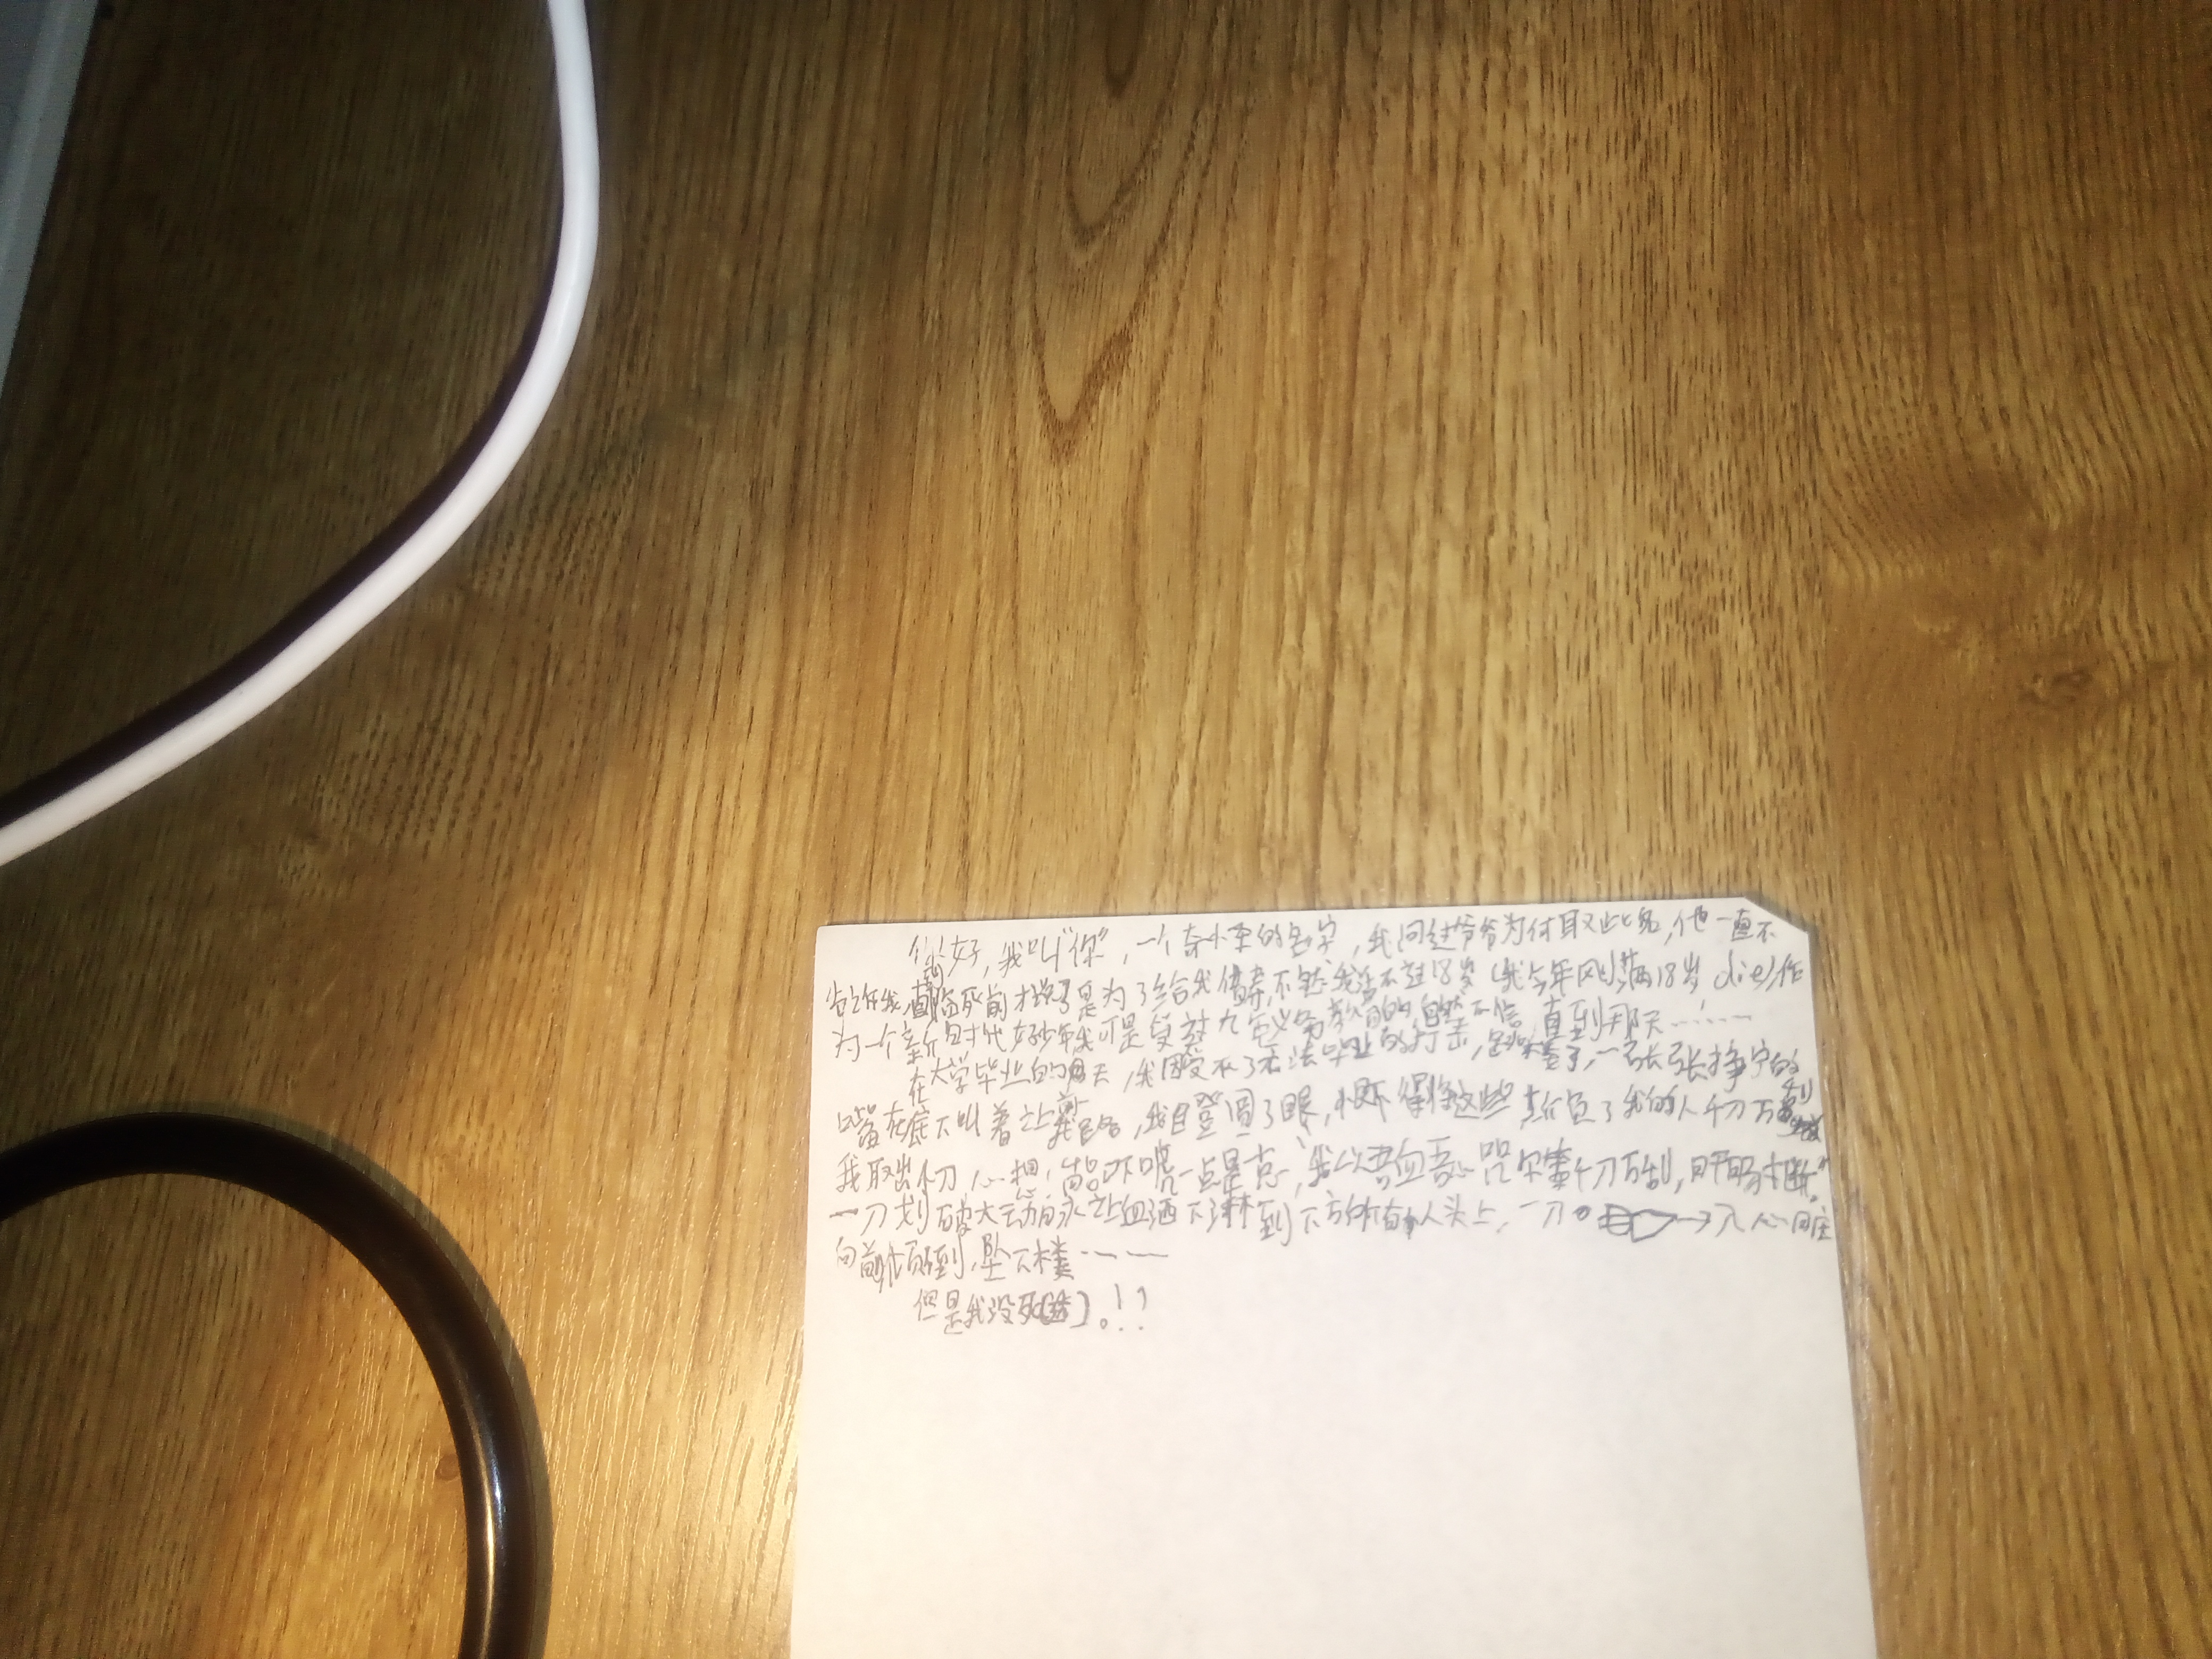 你好,我叫"你",一个奇怪的名字,我问过爷爷为何取此名,他一直不
告诉我,直到临死前才说是为了给我借寿,不然我活不过18岁(我今年刚满18岁die)作
为一个新时代好少年我可是受过九年义务教育的,自然不信,直到那天……
在大学毕业的那天,我因受不了无法毕业的打击,跳楼了,一张张狰狞的
嘴在底下叫着让我跳,我目登圆了眼,恨不得将这些辜负了我的人千刀万剐
我取出小刀心想,吓唬一点是一点,"我以吾血吾心咒尔等千刀万剐,肝肠寸断"。
一刀划破大动脉让血洒下淋到下方所有人头上,一刀 入心口
向前倾倒,坠下楼……
但是我没死。!?